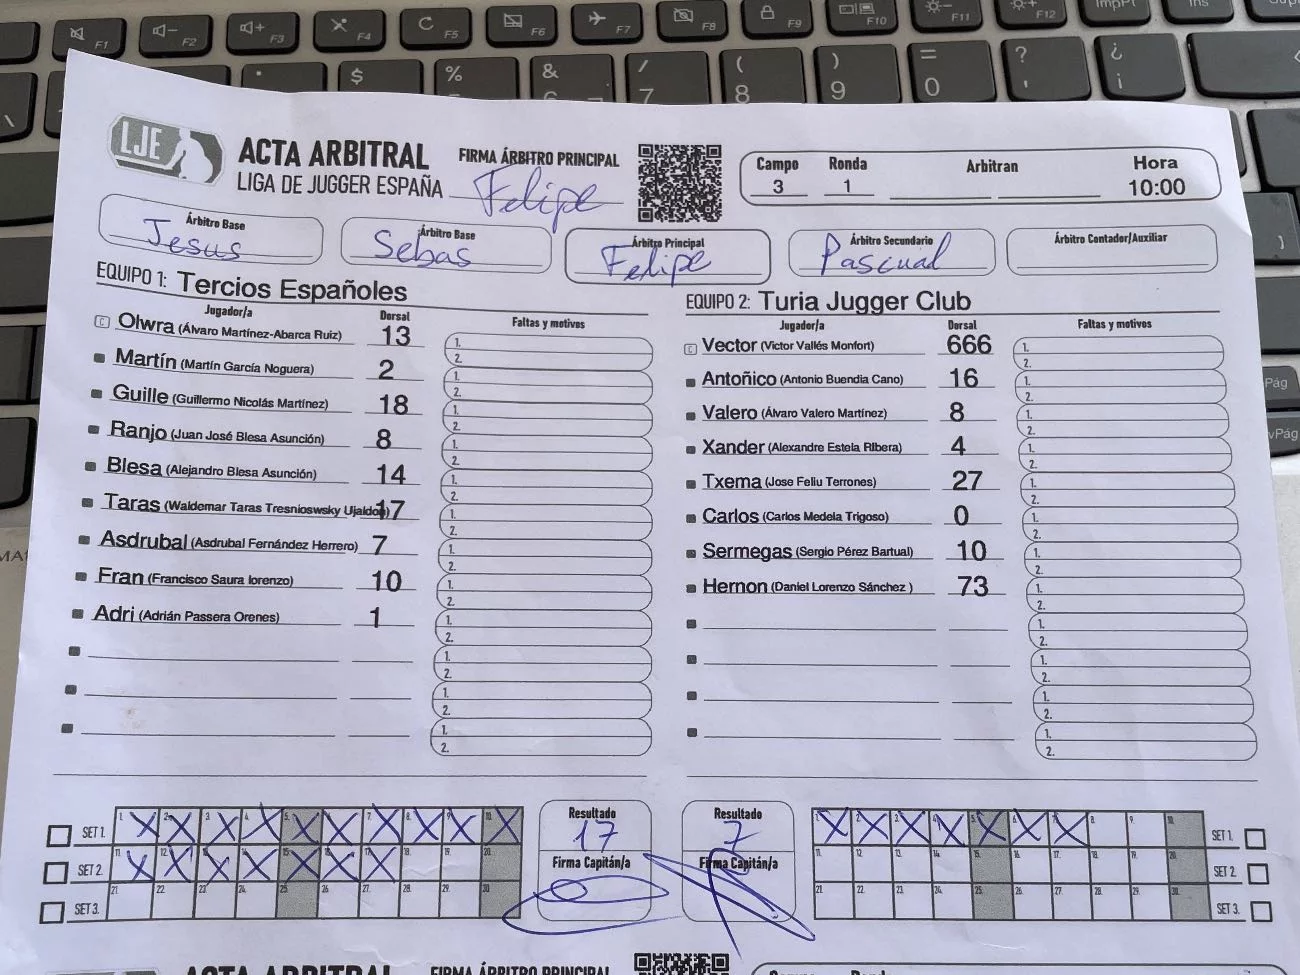 F1 F2 F3 F4 F5 F6 F7 F8 F9 F10 F11 F12 ImpPt Ins
$ % & / ( ) = ? ¿
7 8 9 0 ' ¡
LJE
ACTA ARBITRAL
LIGA DE JUGGER ESPAÑA
FIRMA ÁRBITRO PRINCIPAL
Felipe
Campo Ronda Arbitran Hora
3 1 10:00
Árbitro Base
Jesus
Árbitro Base
Sebas
Árbitro Principal
Felipe
Árbitro Secundario
Pascual
Árbitro Contador/Auxiliar
EQUIPO 1: Tercios Españoles
Jugador/a Dorsal Faltas y motivos
C Olwra (Álvaro Martínez-Abarca Ruiz) 13 1. 2.
Martín (Martín García Noguera) 2 1. 2.
Guille (Guillermo Nicolás Martínez) 18 1. 2.
Ranjo (Juan José Blesa Asunción) 8 1. 2.
Blesa (Alejandro Blesa Asunción) 14 1. 2.
Taras (Waldemar Taras Tresnioswsky Ujaldon) 17 1. 2.
Asdrubal (Asdrubal Fernández Herrero) 7 1. 2.
Fran (Francisco Saura lorenzo) 10 1. 2.
Adri (Adrián Passera Orenes) 1 1. 2.
1. 2.
1. 2.
1. 2.
EQUIPO 2: Turia Jugger Club
Jugador/a Dorsal Faltas y motivos
C Vector (Victor Vallés Monfort) 666 1. 2.
Antoñico (Antonio Buendia Cano) 16 1. 2.
Valero (Álvaro Valero Martínez) 8 1. 2.
Xander (Alexandre Estela RIbera) 4 1. 2.
Txema (Jose Feliu Terrones) 27 1. 2.
Carlos (Carlos Medela Trigoso) 0 1. 2.
Sermegas (Sergio Pérez Bartual) 10 1. 2.
Hernon (Daniel Lorenzo Sánchez ) 73 1. 2.
1. 2.
1. 2.
1. 2.
1. 2.
SET 1. 1. 2. 3. 4. 5. 6. 7. 8. 9. 10.
SET 2. 11. 12. 13. 14. 15. 16. 17. 18. 19. 20.
SET 3. 21 22. 23. 24. 25. 26. 27. 28. 29. 30
Resultado
17
Firma Capitán/a
Resultado
7
Firma Capitán/a
1. 2. 3. 4. 5. 6. 7. 8. 9. 10. SET 1.
11. 12. 13. 14. 15. 16. 17. 18. 19. 20. SET 2.
21 22. 23. 24. 25. 26. 27. 28. 29. 30. SET 3.
ACTA ARBITRAL FIRMA ÁRBITRO PRINCIPAL
Campo Ronda
Pág
vPág